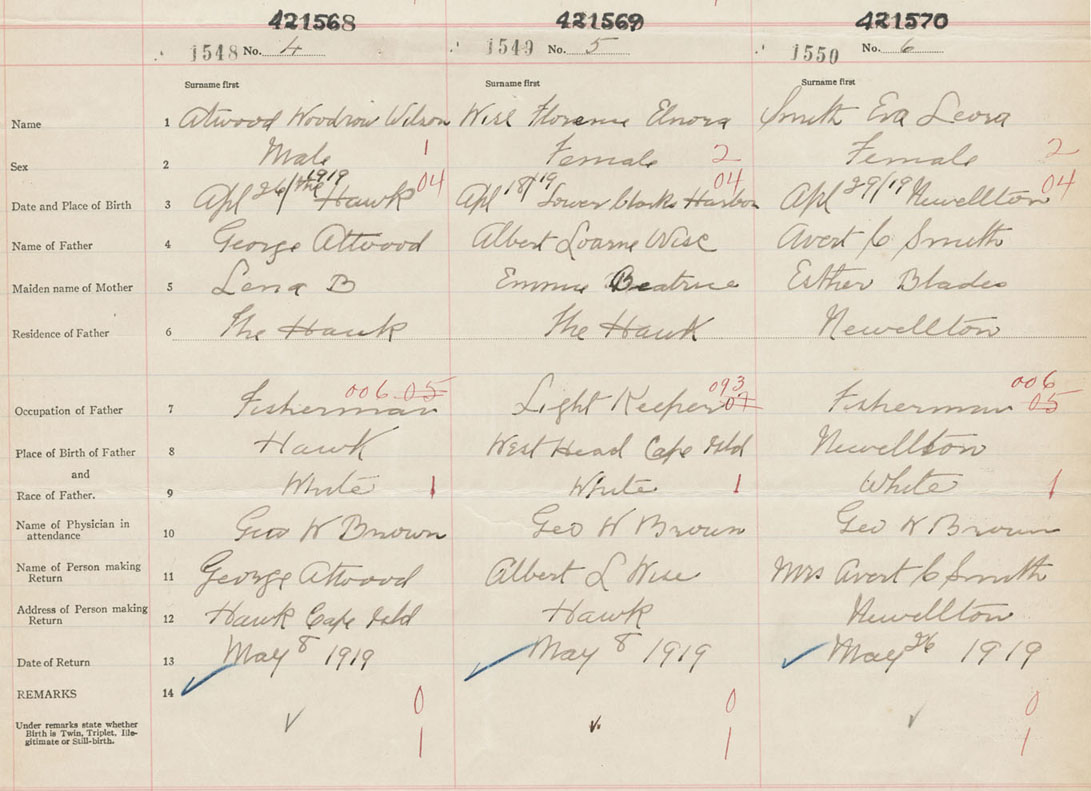 421568 421569 421570
1548 No. 4 1549 No. 5 1550 No. 6
Surname first Surname first Surname first
Name 1 Atwood Woodrow Wilson Wise Florence Elnora Smith Eva Leora
Sex 2 Male 1 Female 2 Female 2
Date and Place of Birth 3 Apl 26/1919 the Hawk 04 Apl 18/19 Lower Clarks Harbor 04 Apl 29/19 Newellton 04
Name of Father 4 George Atwood Albert Loarne Wise Avert C Smith
Maiden name of Mother 5 Lena B Emma Beatrice Esther Blades
Residence of Father 6 The Hawk The Hawk Newellton
Occupation of Father 7 Fisherman 006 05 Light Keeper 093 07 Fisherman 006 05
Place of Birth of Father 8 Hawk West Head Cape Isld Newellton
and
Race of Father. 9 White 1 White 1 White 1
Name of Physician in
attendance 10 Geo W Brown Geo W Brown Geo W Brown
Name of Person making
Return 11 George Atwood Albert L Wise Mrs Avert C Smith
Address of Person making
Return 12 Hawk Cape Isld Hawk Newellton
Date of Return 13 May 8 1919 May 8 1919 May 26 1919
REMARKS 14 0 0 0
Under remarks state whether
Birth is Twin, Triplet, Ille-
gitimate or Still-birth. 1 1 1